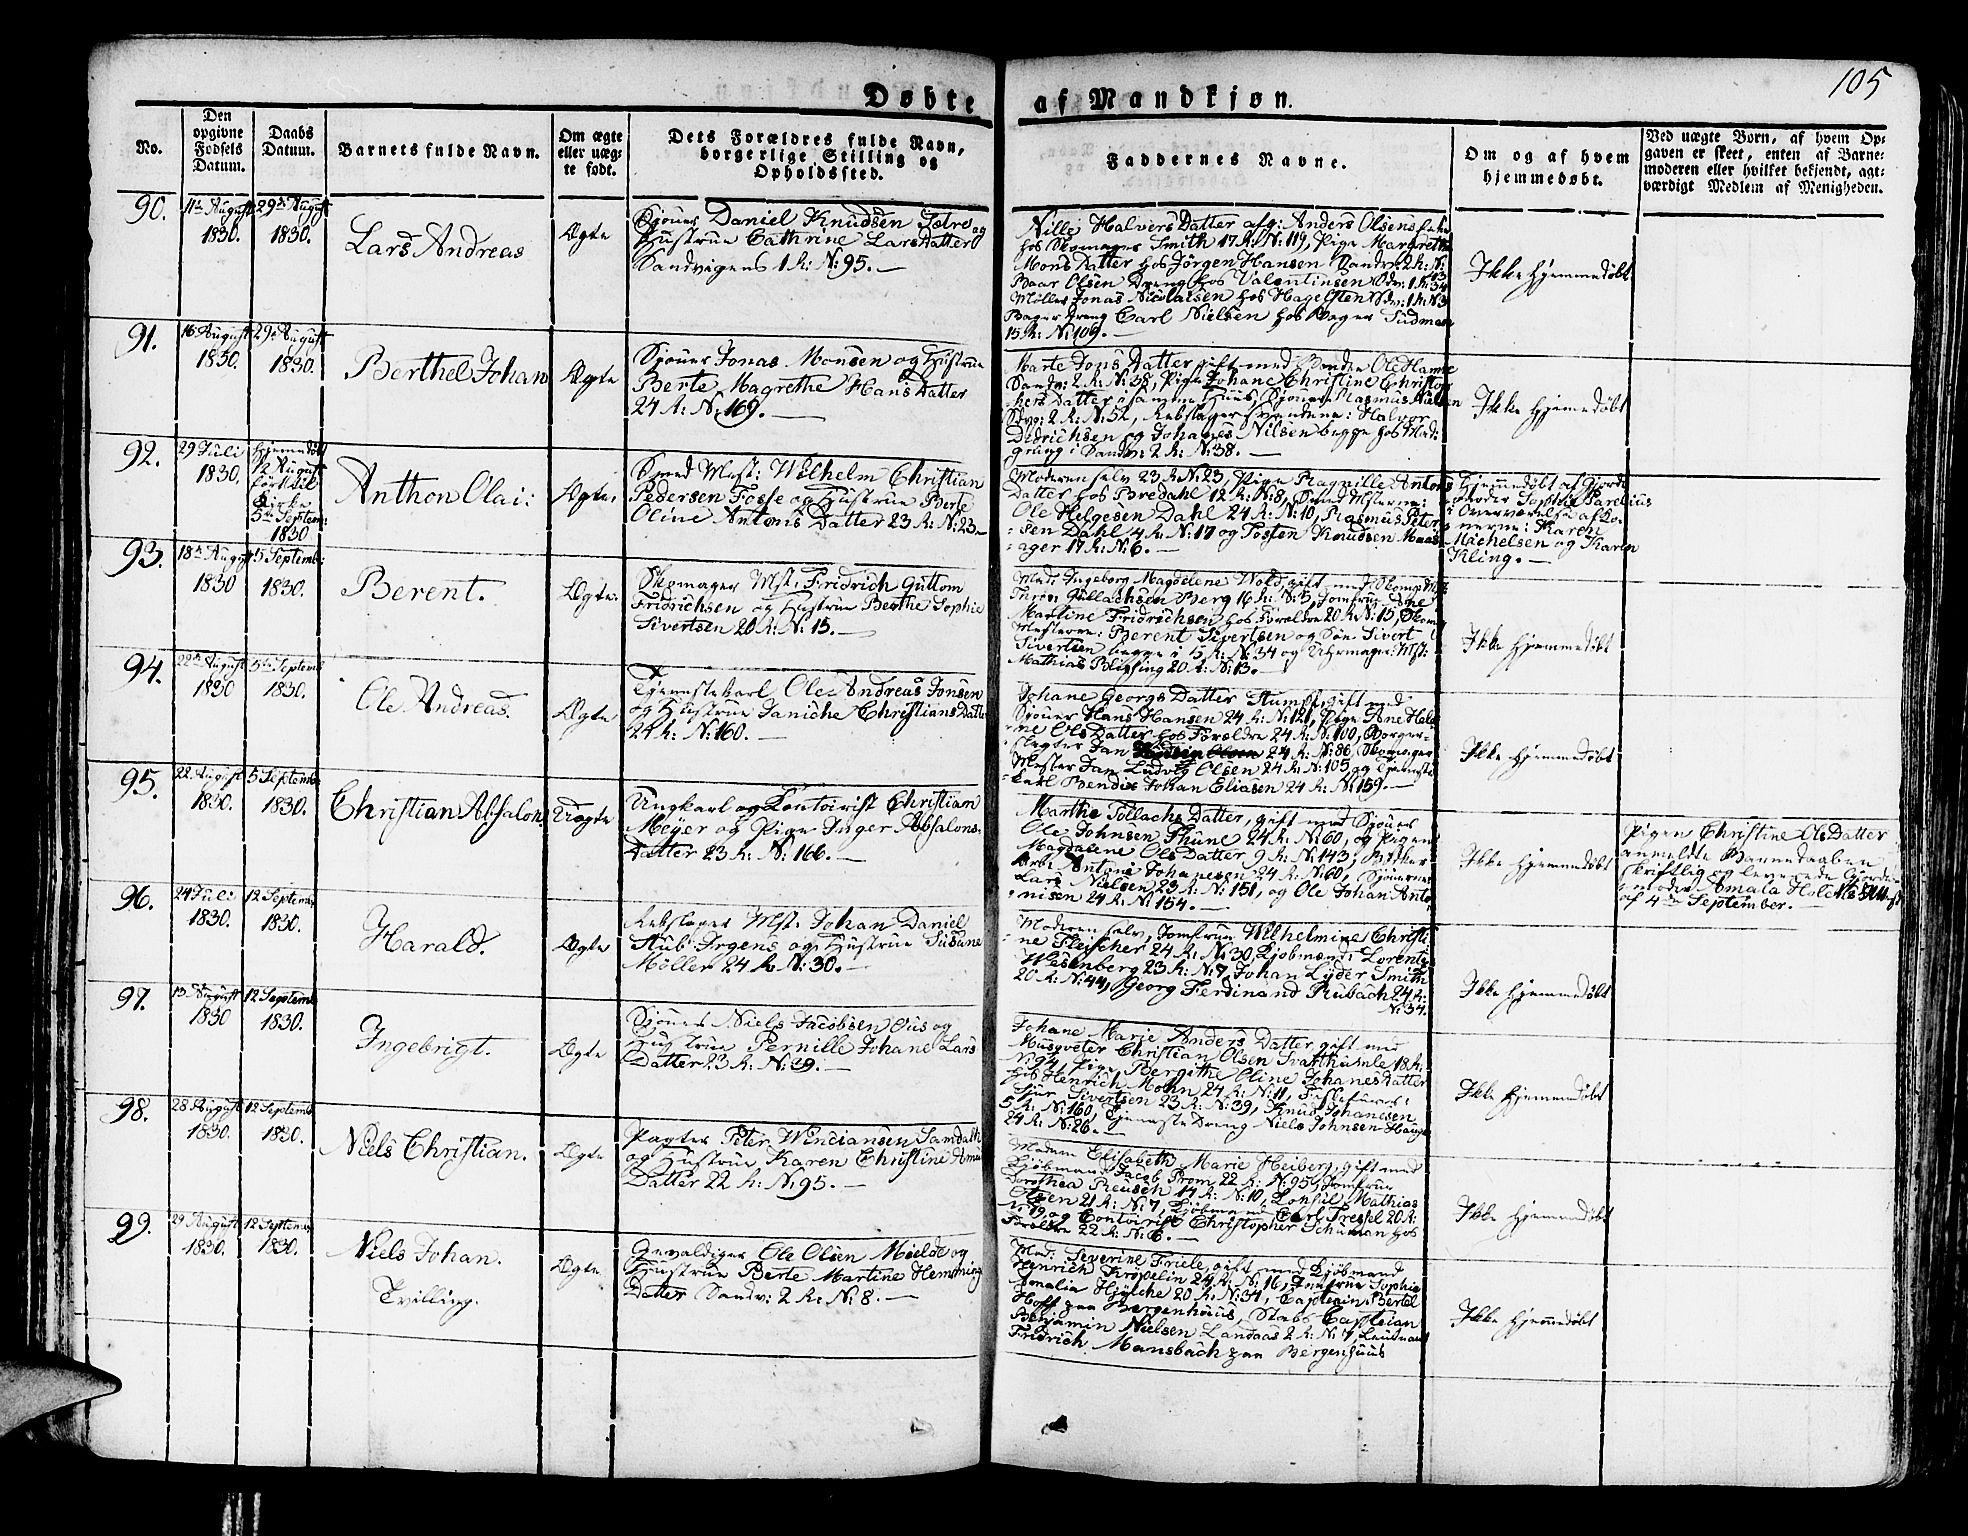 105
Døbte af Mandkjøn.
No.
Den opgivne Fødsels Datum.
Daabs Datum.
Barnets fulde Navn.
Om ægte eller uæg-
te født.
Dets Forældres fulde Navn,
borgerlige Stilling og
Opholdssted.
Faddernes Navne.
Om og af hvem
hjemmedøbt.
Ved uægte Børn, af hvem Op-
gaven er skeet, enten af Barne-
moderen eller hvilket bekjendt, agt-
værdigt Medlem af Menigheden.
90.
11te August 1830.
29de August 1830.
Lars Andreas
Ægte
Sjouer Daniel Knudsen Sætre og
Hustrue Cathrine LarsDatter
Sandvigens 1 R: N: 95.
Nille HalversDatter afg: Anders Olsens Enke
hos Skomager Smith 17 R: N: 119, Pige Margrethe
MonsDatter hos Jørgen Hansen Sandv: 2 R: N:
Baar Olsen Dreng hos Valentinsen Sdv: 1 R: 34
Møller Jonas Nicolaisen hos Hagelsten Sdv: 1 R: N3
Bager Dreng Carl Nielsen hos Bager Sudman
15 R: N: 109.
Ikke hjemmedøbt
91.
16 August 1830.
29de August 1830.
Berthel Johan
Ægte
Sjouer Jonas Monsen og Hustrue
Berte Magrethe HansDatter
24 R: N: 169.
Marte JonsDatter gift med Bonden Ole Hamre
Sandv: 2 R: N: 38, Pige Johane Christine Christop
hersDatter i samme Huus, Sjouer Rasmus Nielsen
Sdvg: 2 R: N: 52, Rebslager Svendene: Halvor
Didrichsen og Johanes Nilsen begge hos Mad:
Grung i Sandv: 2 R: N: 38.
Ikke hjemedøbt
92.
29 Juli 1830.
Hjemmedøbt 12 August
Kirke 5te Septem: 1830
Anthon Olai:
Ægte.
Smed Mest: Wilhelm Christian
Pedersen Fosse og Hustrue Berte
Oline AntonsDatter 23 R: N: 23.
Moderen selv 23 R: N: 23, Pige Ragnille Antons
Datter hos Bredahl 12 R: N: 8, Smed Mesterne:
Ole Helgesen Dahl 24 R: N: 10, Rasmus Peter
sen Dahl 4 R: N: 17 og Tosten Knudsen
ager 17 R: N: 6.
Hjemmedøbt af Gjorde
moder Sophia Parelius
i Overværelse af Ko-
nerne: Karen
Michelsen og Karen
Kling.
93.
18de August 1830
5 Septemb: 1830.
Berent.
Ægte.
Skomager Mst: Fridrich Guttom
Fridrichsen og Hustrue Berthe Sophie
Sivertsen 20 R: N: 15.
Mad: Ingeborg Magdelene Wold, gift med Skomag: Mst:
Berg 16 R: N: 5, Jomfrue Ane
Martine Fridrichsen hos Forældre 20 R: N: 15, Skom:
Mesterne: Berent Sivertsen og Søn Sivert
Sivertsen begge i 15 R: N: 34 og Uhrmager: Mst:
Mathias 20 R: N: 13.
Ikke hjemmedøbt
94.
22de August 1830
5te Septemb 1830.
Ole Andreas.
Ægte
Tjenestekarl Ole Andreas Jonsen
og Hustrue Janiche ChristiansDatter
24 R: N: 160.
Johane GeorgsDatter Stumpf, gift med
Sjouer Hans Hansen 24 R: N: 121, Pige Ane Hele
ne OlsDatter hos Forældre 24 R: N: 100, Borger-
24 R: N: 86, Skomager
Mester Jan Ludvig Olsen 24 R: N: 105 og Tjeneste
karl Bendix Johan Eliasen 24 R: N: 159.
Ikke hjemmedøbt
95.
22 August 1830.
5 Septembr 1830.
Christian Absalon.
Uægte
Ungkarl og Contoirist Christian
Meyer og Pige Inger Absalons-
Datter 23 R: N: 166.
Marthe TollachsDatter, gift med Sjouer
Ole Johnsen Thune 24 R: N: 60, og Pigen
Magdalene OlsDatter 9 R: N: 143,
Antoni Johanesen 24 R: N: 60, Sjouerne
Lars Nielsen 23 R: N: 151, og Ole Johan Anto-
nisen 24 R: N: 154.
Ikke hjemmedøbt
Pigen Christine OlsDatter
anmeldte Barnedaaben
skriftlig og leverede Gjorde-
moder Amala
af 4de September.
96.
24 Juli 1830.
12 Septemb 1830.
Harald.
Ægte
Rebslager Mst: Johan Daniel
Stub Irgens og Hustrue Susane
Møller 24 R. N: 30.
Moderen selv, Jomfrue Wilhelmine Christi-
ne Fleischer 24 R: N: 30, Kjøbmænd: Lorents
Wesenberg 23 R: N: 7, Johan Lyder Smith
20 R: N: 44, Georg Ferdinand Rubach 24 R:
N: 34.
Ikke hjemmedøbt
97.
13 August 1830
12 Septemb 1830.
Ingebrigt.
Ægte
Sjouer Niels Jacobsen Ous og
Hustrue Pernille Johane Lars
Datter 23 R: N: 39.
Johane Marie AndersDatter gift med
Musqveter Christian Olsen Svarthumle 18 R:
N: 94, Pige Bergithe Oline JohanesDatter
hos Henrich Mohn 24 R: N: 11,
Sjur Sivertsen 23 R: N: 39, Knud Johanesen
5 R: N: 160, Tjeneste Dreng Niels Johnsen Hauge
24 R: N: 26.
Ikke hjemmedøbt
98.
28 August 1830.
12 Septemb 1830.
Niels Christian.
Ægte
Pagter Peter Wenciansen Samdahl
og Hustrue Karen Christine Amun
Datter 22 R: N: 95.
Madam Elisabeth Marie Heiberg, gift med
Kjøbmand Jacob Prom 22 R: N: 95, Jomfrue
Dorothea Reusch 14 R: N: 10, Consul Mathias
Olsen 21 R: N: 7, Kjøbmand Carl Tressel 20 R:
N: 19, og Contoirist Christopher Schuman hos
22 R: N: 6.
Ikke hjemmedøbt
99.
29 August 1830.
12 Septemb 1830.
Niels Johan.
Tvilling.
Ægte
Gevaldiger Ole Olsen Mielde og
Hustrue Berte Martine Hemming
Datter Sandv: 2 R: N: 8.
Mad: Severine Friele, gift med Kjøbmand
Henrich Krøpelin 24 R: N: 16, Jomfrue Sophie
Amalia Hylche 20 R: N: 34, Captain: Bertel
Hoff paa Bergenhuus, Stabs Captaian
Benjamin Nielsen Landaas 2 R: N: 7, Leutnant
Fridrich Mansbach paa Bergenhuus
Ikke hjemmedøbt